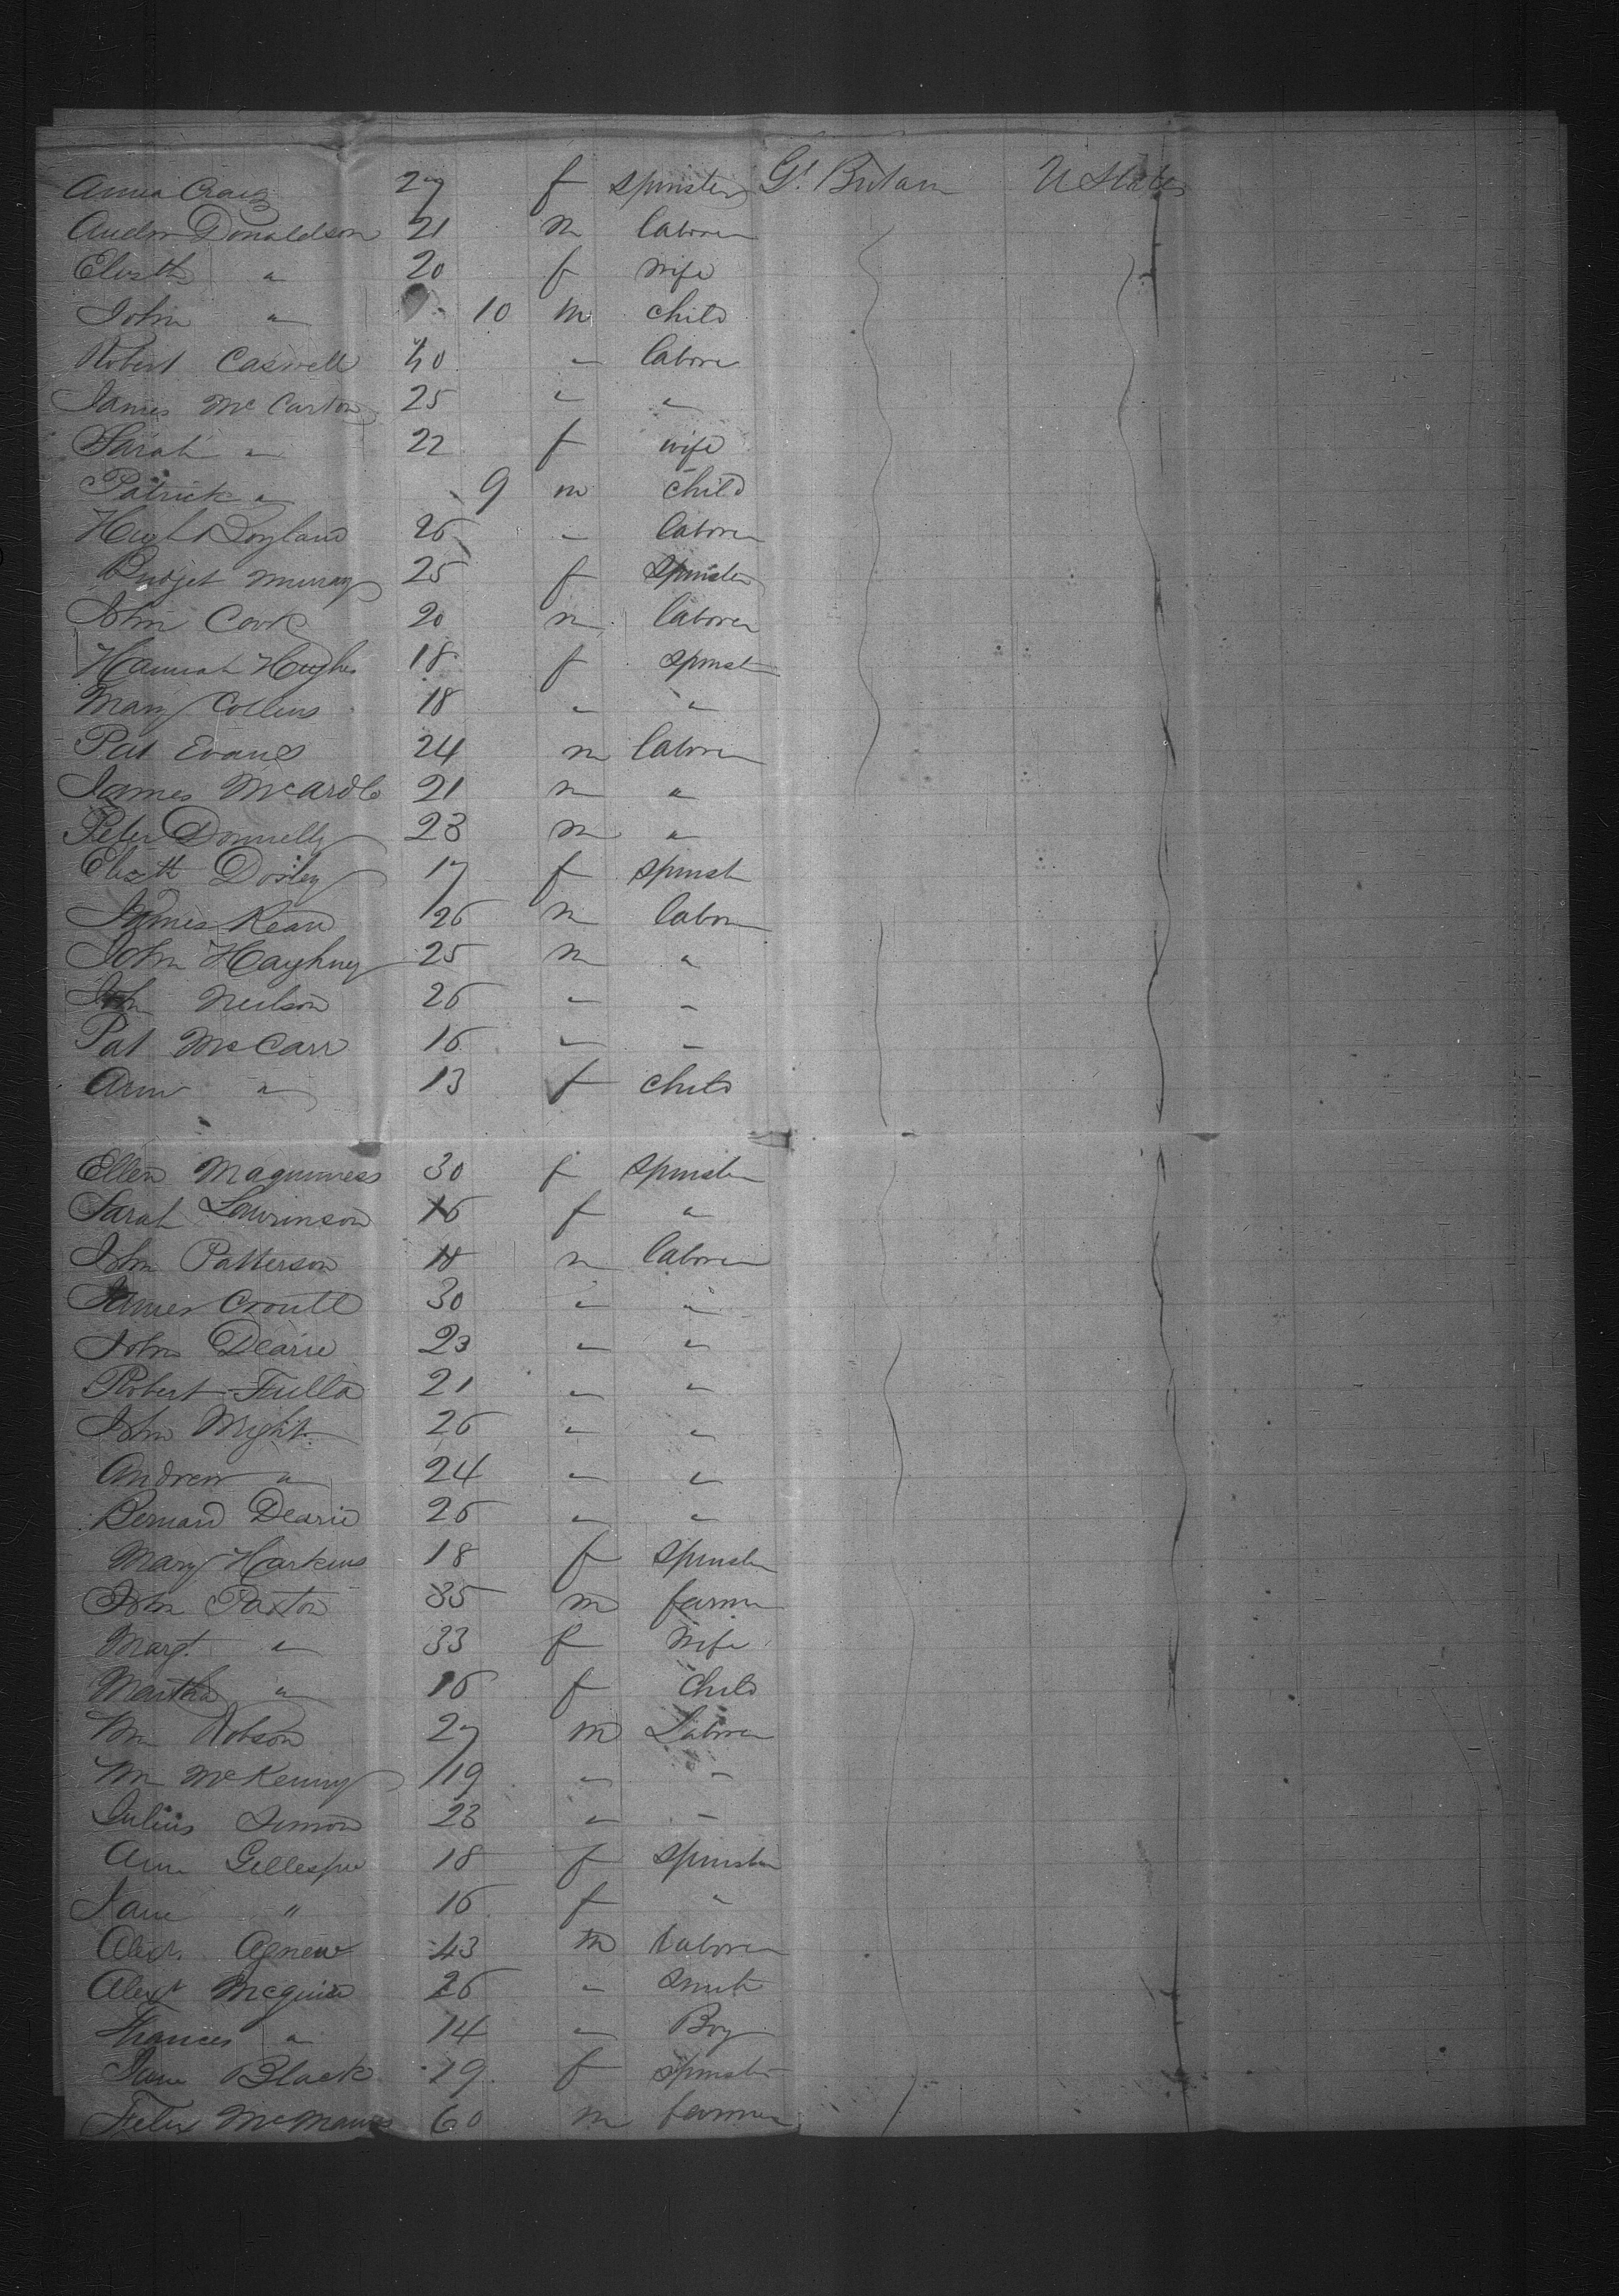 Anna Craig 27 f spinster Gt. Britain U States
Andw Donaldson 21 m laborer
Elizth " 20 f wife
John " 10 m child
Robert Caswell 40 " labore
James Mc Carton 25 " "
Sarah " 22 f wife
Patrick " 9 m child
Hugh Boyland 26 " laborer
Bridget Murray 25 f spinster
John Cook 20 m laborer
Hannah Hughes 18 f spinst
Mary Collins 18 " "
Pat Evans 24 m laborer
James McArdle 21 m "
Peter Donnelly 23 m "
Elizth Dosley 17 f spinst
James Kean 26 m labor
John Hayhney 25 m "
John Neilson 26 " "
Pat McCarr 16 " "
Ann " 13 f child
Ellen Maguinness 30 f spinster
Sarah Lowrinson 16 f "
John Patterson 18 m laborer
James Croutt 30 " "
John Dearie 23 " "
Robert Fulla 21 " "
John Wright 26 " "
Andrew " 24 " "
Bernard Dearie 26 " "
Mary Harkins 18 f spinster
John Paxton 35 m farmer
Margt. " 33 f wife
Martha " 16 f child
Wm Robson 27 m Laborer
Wm McKenny 19 " "
Julius Simon 23 " "
Ann Gillespie 18 f spinster
Jane " 16 f "
Alexr. Agnew 43 m Laborer
Alexr McGuire 26 " smith
Frances " 14 " Boy
Jane Black 19 f spinster
Felix McManus 60 m farmer